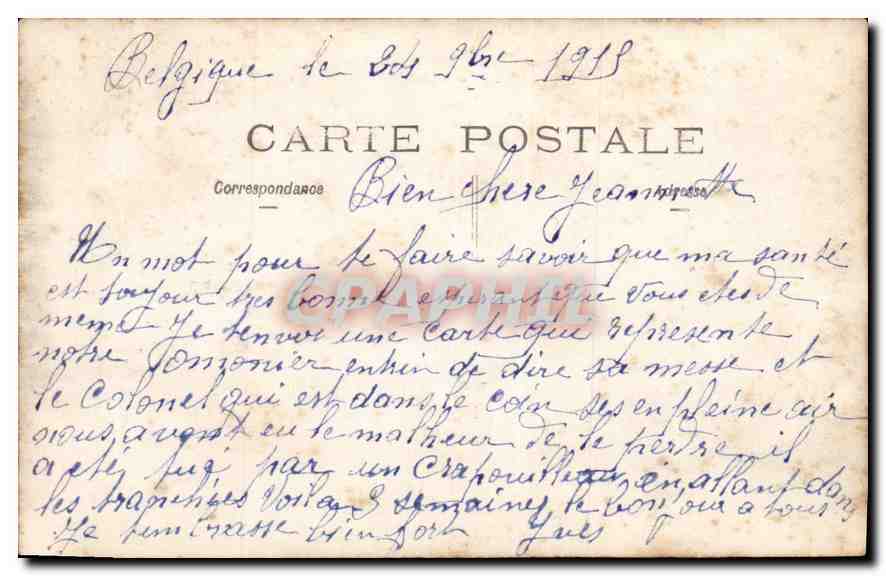 Belgique le 24 9bre 1915
CARTE POSTALE
Correspondance
Adresse
Bien chere Jeannette
Un mot pour te faire savoir que ma santé
est toujour tres bonne esperant que vous etes de
meme Je tenvoi une carte que represente
notre omonier entrin de dire sa messe et
le Colonel qui est dans le coin ses en pleine air
nous avont eu le malheur de le perdre il
a eté tué par un crapouilleau en allant dans
les tranchées Voila 3 semaines le bonjour a tous
Je tembrasse bien fort Yves
CPAPHIL